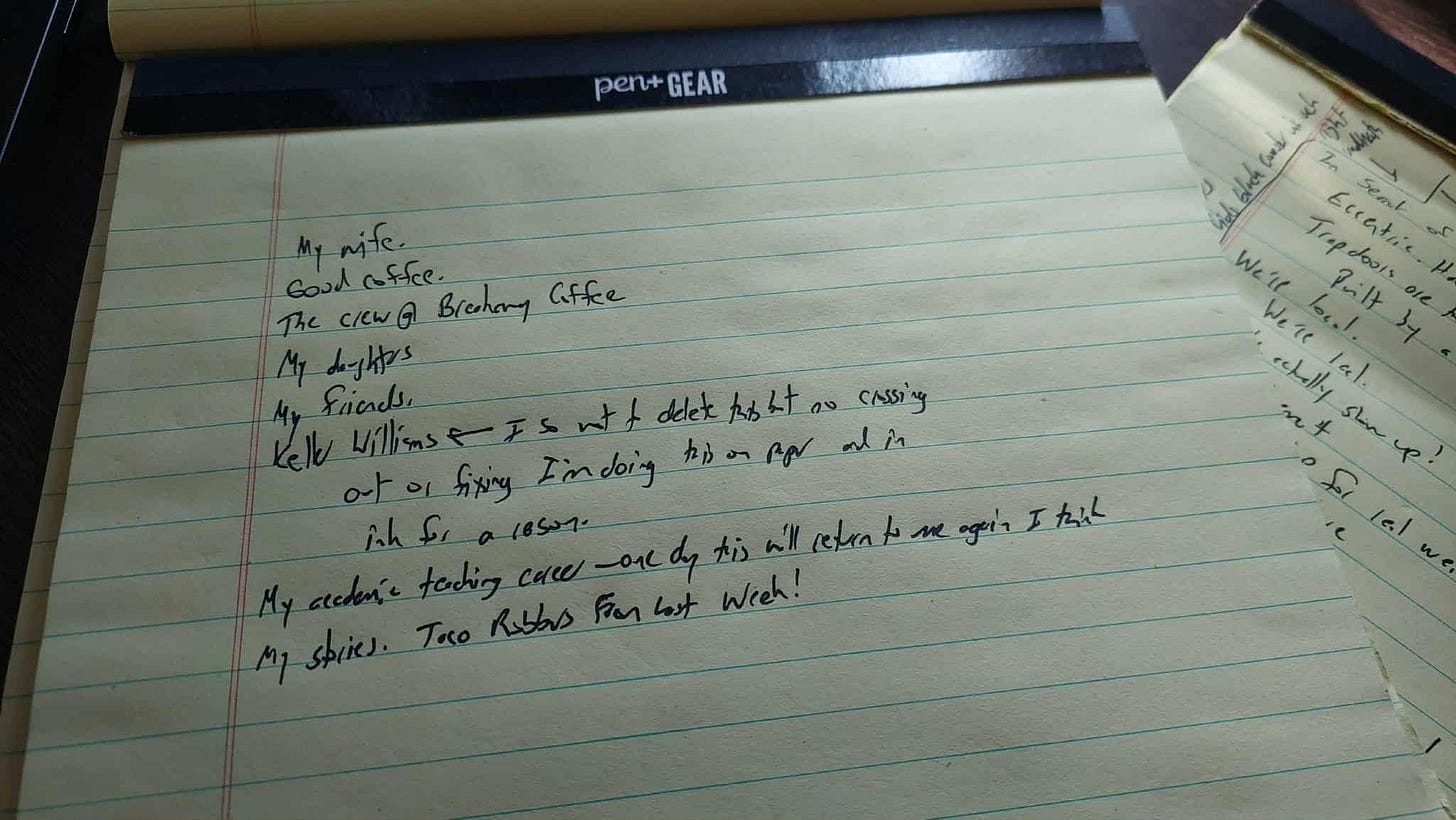 pen+GEAR
My wife.
Good coffee.
The crew @ Coffee
My daughters
My friends.
Kelly Williams ← I so want to delete this but no crossing
out or fixing I'm doing this on paper and in
ink for a reason.
My academic teaching career — one day this will return to me again I think
My stories. Taco Robbers From Last Week!
right
In
Eccentric.
Trapdoors are
Built by a
We're local.
We're local.
actually show up!
for local